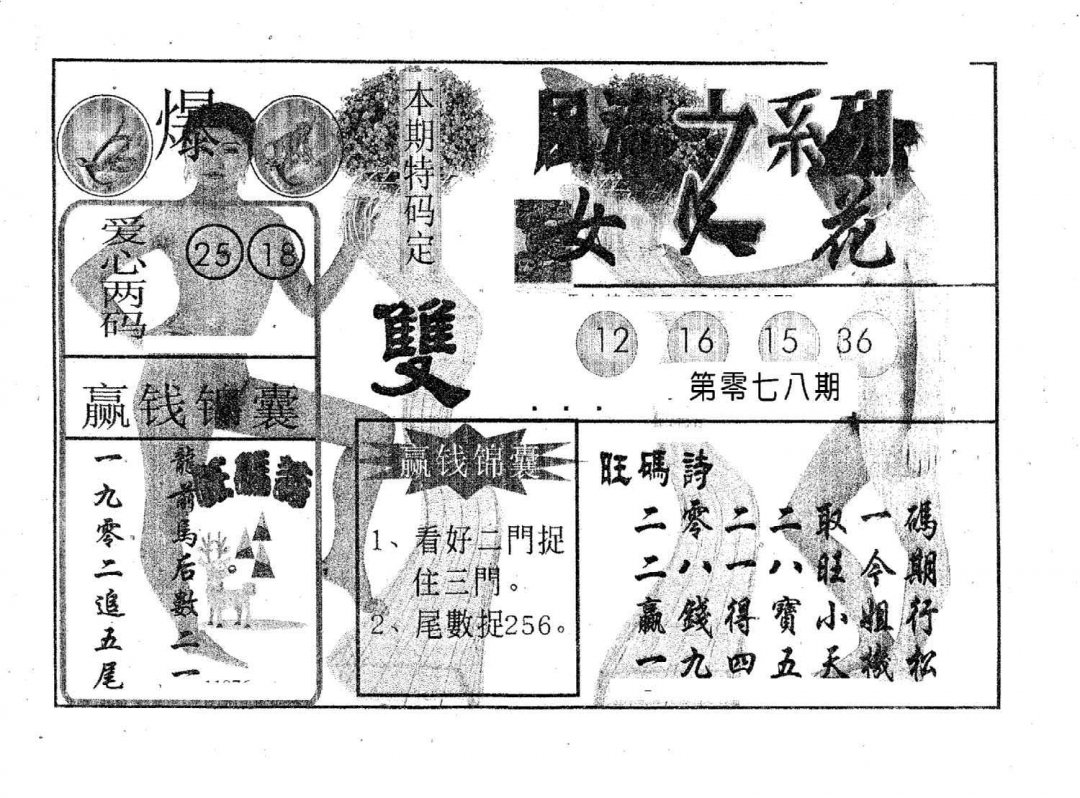 爆
爱心两码
25 18
赢钱锦囊
龍前馬后數二一
一九零二追五尾
本期特码定
雙
系列
女 花
12 16 15 36
第零七八期
赢钱锦囊
1、看好二門捉
住三門。
2、尾數捉256。
旺碼詩
碼期行松
一今姐機
取旺小天
二八寶五
二一得四
零八錢九
二二赢一